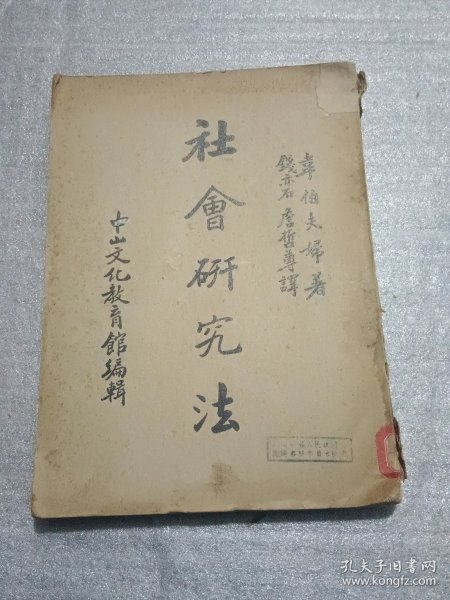 韋伯夫婦著
錢亦石 詹哲尊譯
社會研究法
中山文化教育館編輯
孔夫子旧书网
www.kongfz.com